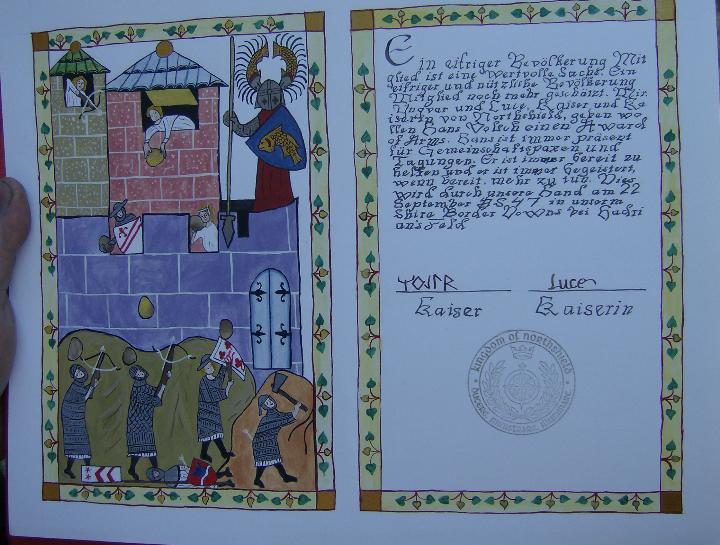 Ein eifriger Bevölkerung Mit
glied ist eine wertvolle Sache. Ein
eifriger und nützliche Bevölkerung
Mitglied noch mehr geschätzt. Wir,
und Luce, Kaiser und Ka
iserin von Northshield, geben wo
llen Hans Volsch einen Award
of Arms. Hans ist immer präsent
für und
Tagungen. Er ist immer bereit zu
helfen und er ist immer begeistert,
wenn bereit, mehr zu tun. Dies
wird durch unsere Hand am 22
September in unserm
Shire Border Downs bei Hadri
ansfeld
Luce
Kaiser
Kaiserin
kingdom of northshield